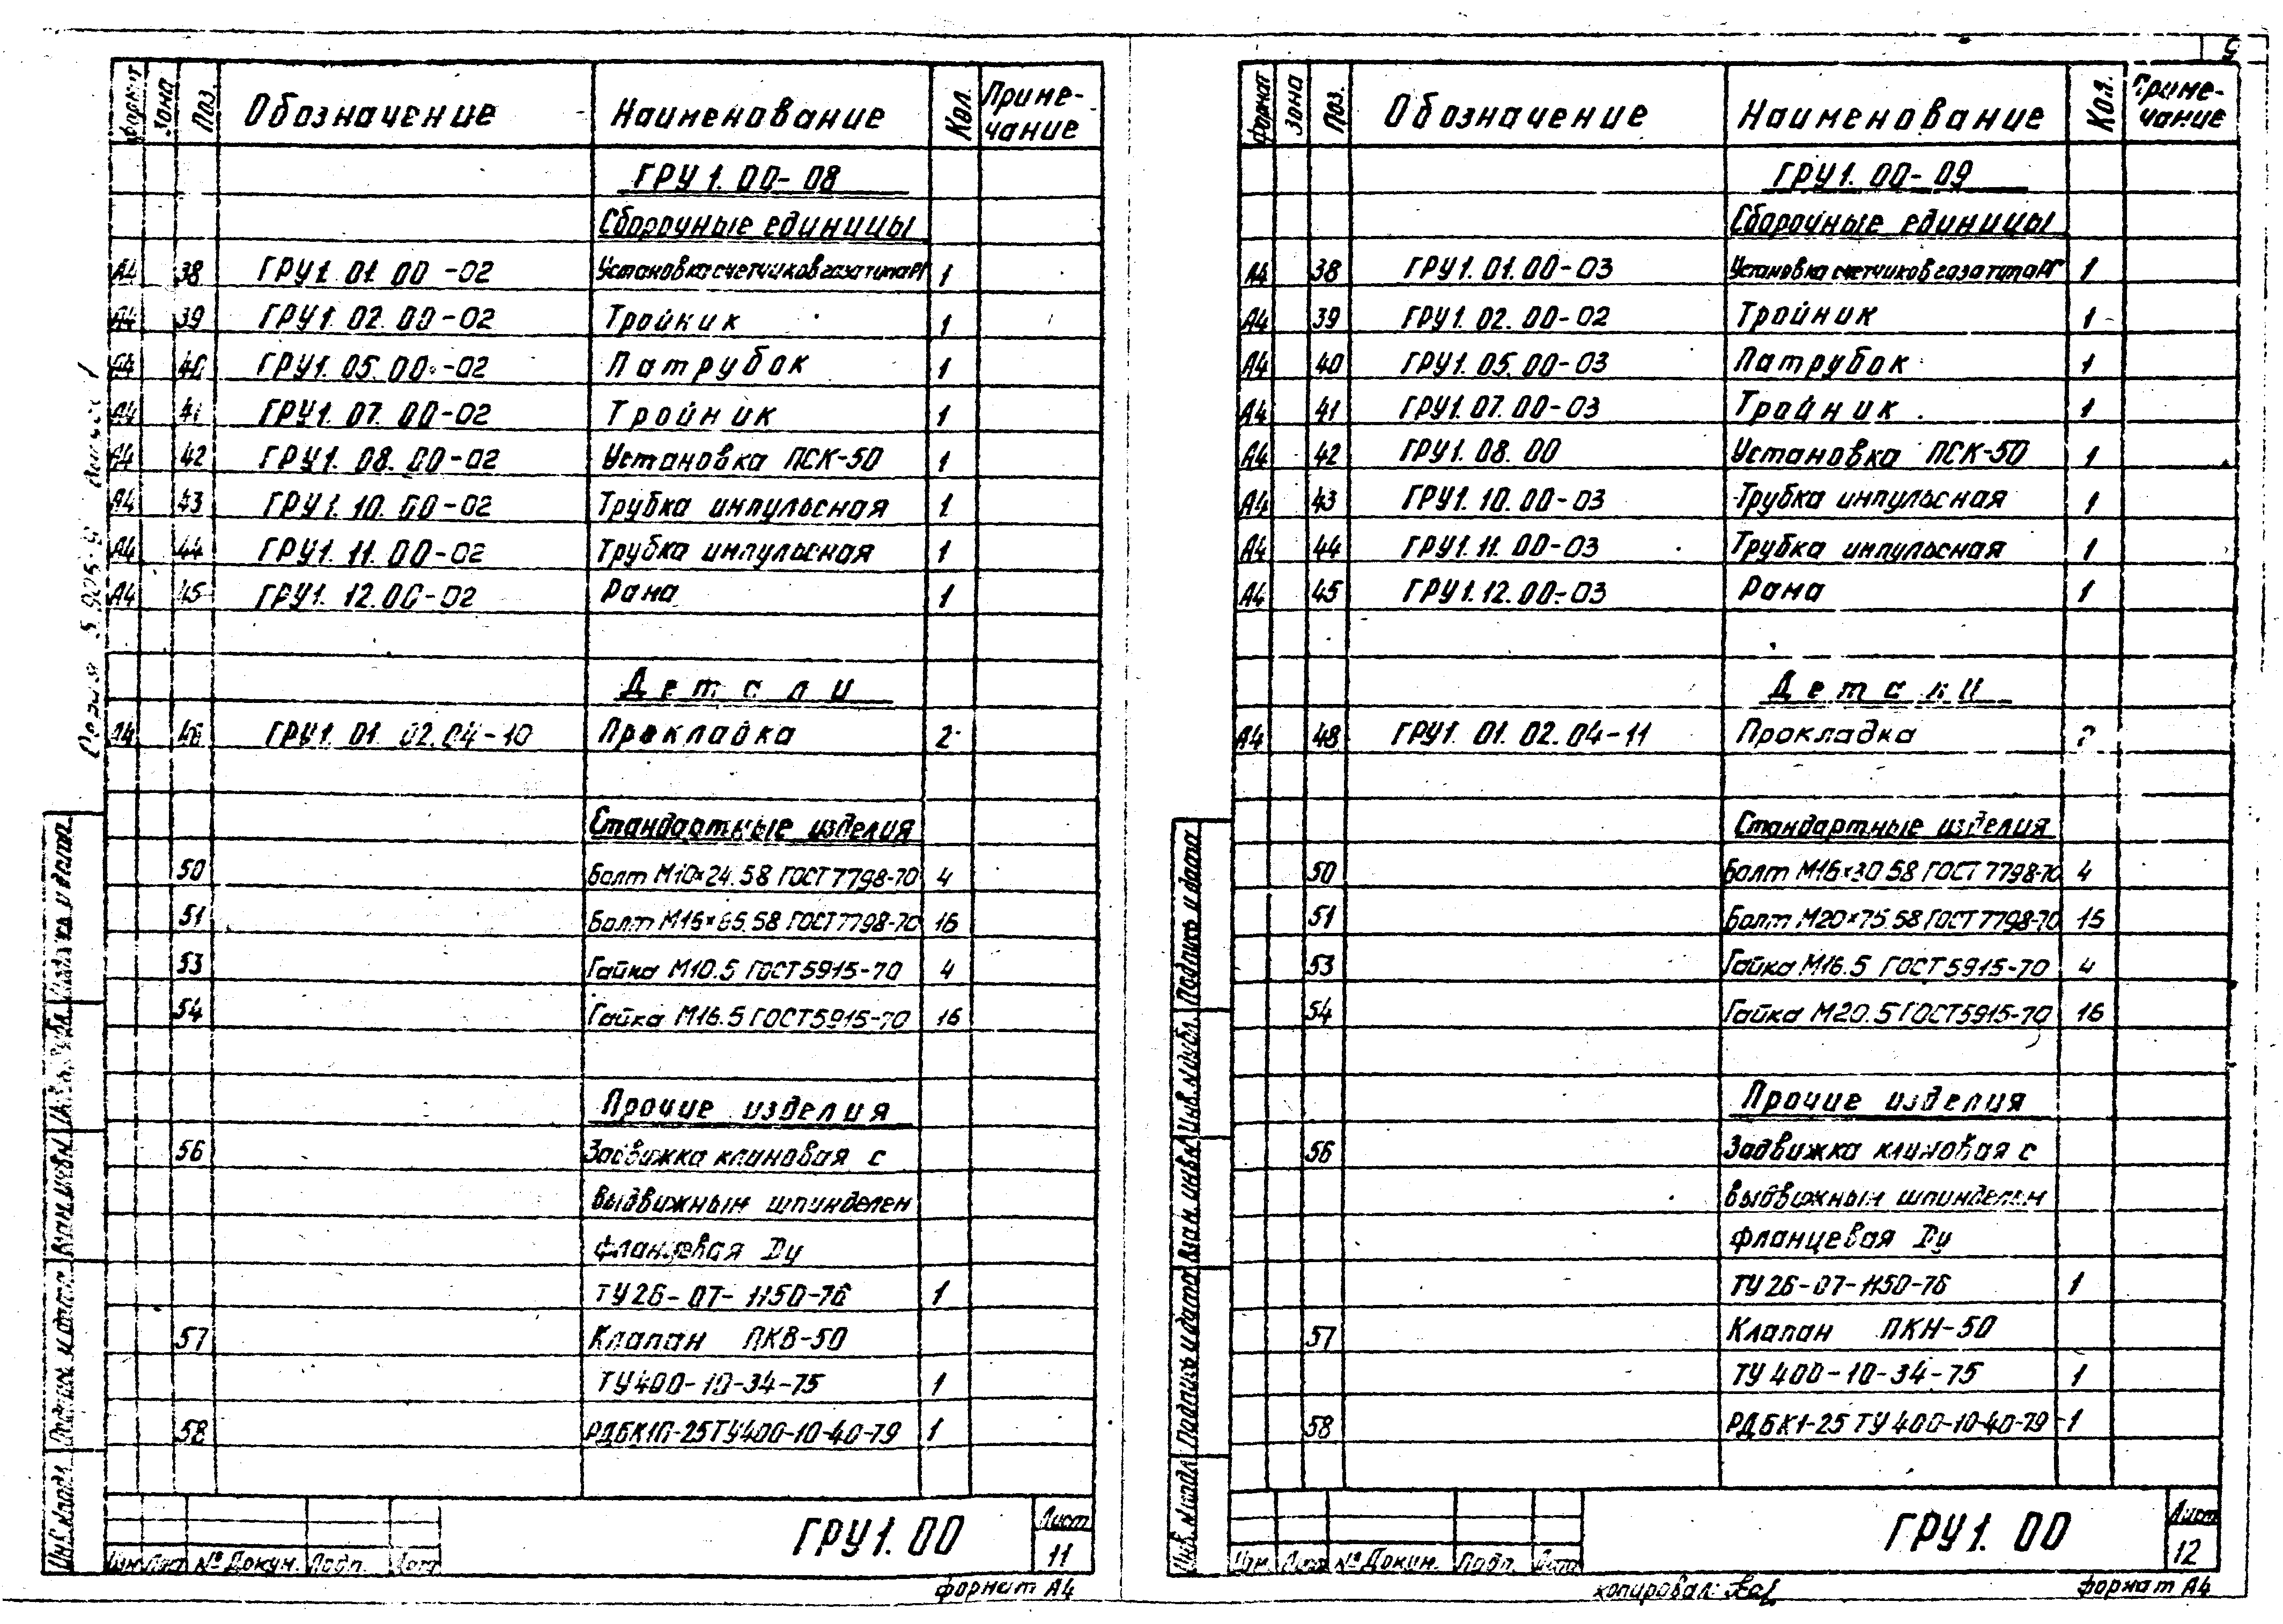 5
Формат Зона Поз. Обозначение Наименование Кол. Приме-
чание
ГРУ 1. 00-08
Сборочные единицы
А4 38 ГРУ1. 01. 00-02 Установка счетчиков газа типа РГ 1
А4 39 ГРУ1. 02. 00-02 Тройник 1
А4 40 ГРУ1. 05. 00-02 Патрубок 1
А4 41 ГРУ1. 07. 00-02 Тройник 1
А4 42 ГРУ1. 08. 00-02 Установка ПСК-50 1
А4 43 ГРУ1. 10. 00-02 Трубка импульсная 1
А4 44 ГРУ1. 11. 00-02 Трубка импульсная 1
А4 45 ГРУ1. 12. 00-02 Рама 1
Детали
А4 ГРУ1. 01. 02. 04-10 Прокладка 2
Стандартные изделия
50 Болт М10×24.58 ГОСТ 7798-70 4
51 Болт М16×65.58 ГОСТ 7798-70 16
53 Гайка М10.5 ГОСТ 5915-70 4
54 Гайка М16.5 ГОСТ 5915-70 16
Прочие изделия
56 Задвижка клиновая с
выдвижным шпинделем
фланцевая Dy
ТУ 26-07-1150-76 1
57 Клапан ПКВ-50
ТУ 400-10-34-75 1
58 РДБК1П-25 ТУ 400-10-40-79 1
Инв. № подл. Подпись и дата Взам. инв. № Инв. № дубл. Подпись и дата
Изм. Лист № Докум. Подп. Дата
ГРУ1. 00
Лист
11
формат А4
Формат Зона Поз. Обозначение Наименование Кол. Приме-
чание
ГРУ 1. 00-09
Сборочные единицы
А4 38 ГРУ1. 01. 00-03 Установка счетчиков газа типа РГ 1
А4 39 ГРУ1. 02. 00-02 Тройник 1
А4 40 ГРУ1. 05. 00-03 Патрубок 1
А4 41 ГРУ1. 07. 00-03 Тройник 1
А4 42 ГРУ1. 08. 00 Установка ПСК-50 1
А4 43 ГРУ1. 10. 00-03 Трубка импульсная 1
А4 44 ГРУ1. 11. 00-03 Трубка импульсная 1
А4 45 ГРУ1. 12. 00-03 Рама 1
Детали
А4 48 ГРУ1. 01. 02. 04-11 Прокладка
Стандартные изделия
50 Болт М16×30.58 ГОСТ 7798-70 4
51 Болт М20×75.58 ГОСТ 7798-70 16
53 Гайка М16.5 ГОСТ 5915-70 4
54 Гайка М20.5 ГОСТ 5915-70 16
Прочие изделия
56 Задвижка клиновая с
выдвижным шпинделем
фланцевая Dy
ТУ 26-07-1150-76 1
57 Клапан ПКН-50
ТУ 400-10-34-75 1
58 РДБК1-25 ТУ 400-10-40-79 1
Инв. № подл. Подпись и дата Взам. инв. № Инв. № дубл. Подпись и дата
Изм. Лист № Докум. Подп. Дата
ГРУ1. 00
Лист
12
копировал:
формат А4